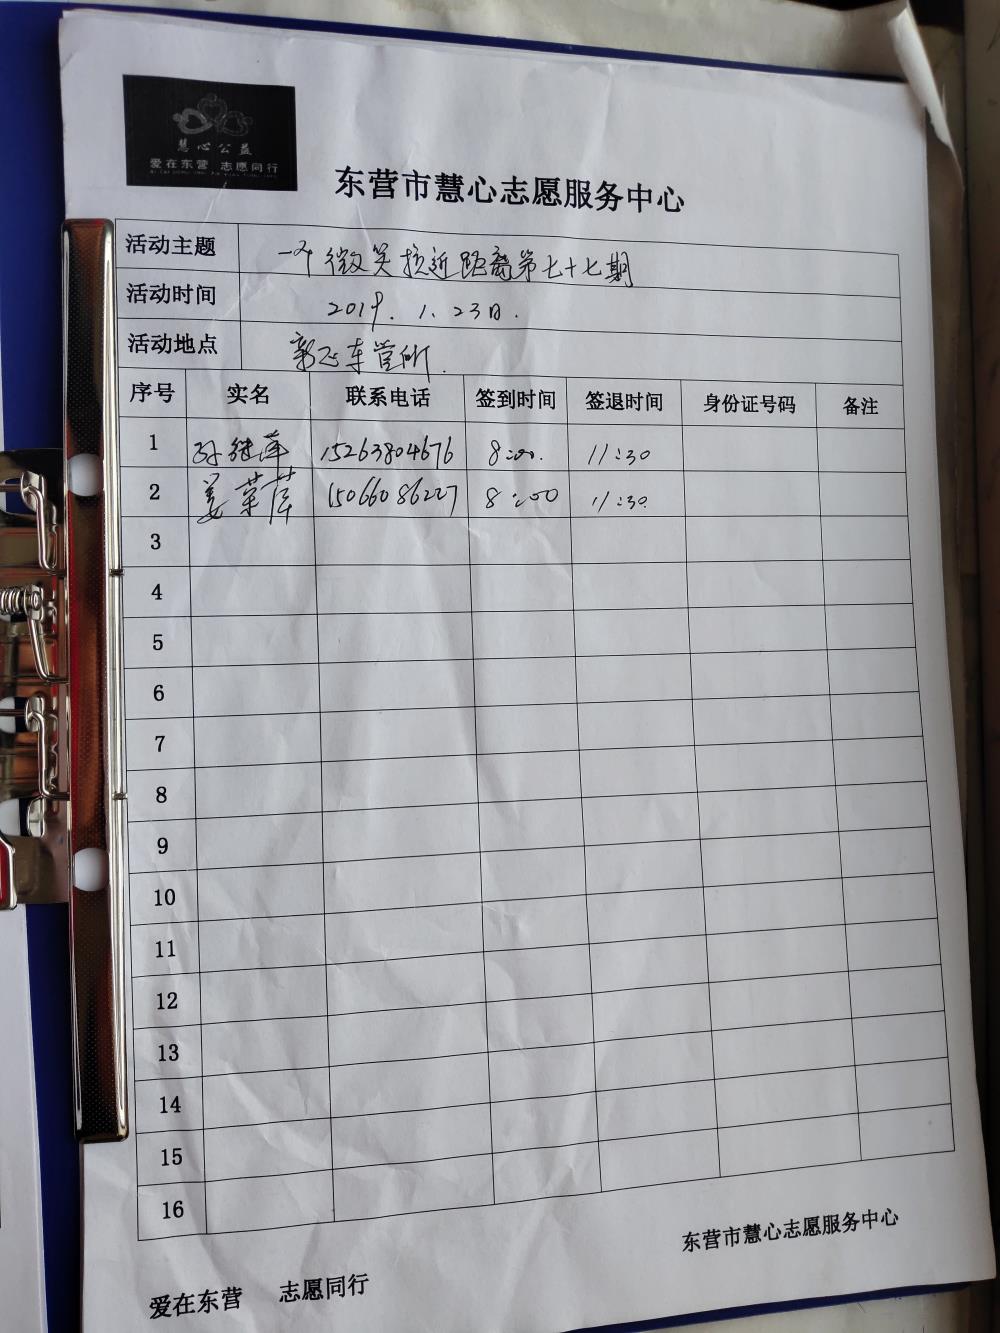 慧心公益
爱在东营 志愿同行
东营市慧心志愿服务中心
活动主题 一个微笑拉近距离第七十七期
活动时间 2019.1.23日.
活动地点 车管所.
序号 实名 联系电话 签到时间 签退时间 身份证号码 备注
1 孙继萍 15263804676 8:00. 11:30
2 姜菜萍 15066086227 8:00 11:30.
3
4
5
6
7
8
9
10
11
12
13
14
15
16
东营市慧心志愿服务中心
爱在东营 志愿同行